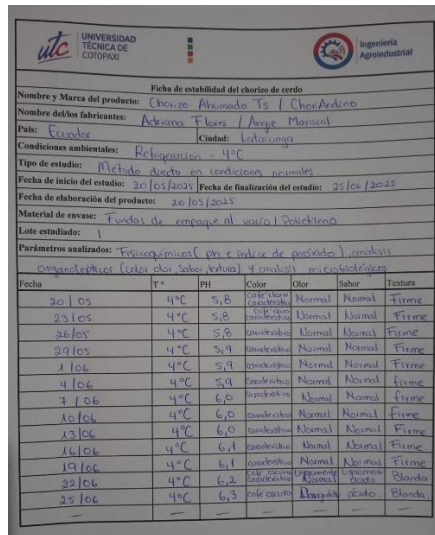 utc
UNIVERSIDAD
TÉCNICA DE
COTOPAXI
Ingeniería
Agroindustrial
Ficha de estabilidad del chorizo de cerdo
Nombre y Marca del producto: Chorizo Ahumado Ts / ChoriAndino
Nombre del/os fabricantes: Adriana Flores / Angie Mariscal
País: Ecuador Ciudad: Latacunga
Condiciones ambientales: Refrigeración - 4°C
Tipo de estudio: Método directo en condiciones normales
Fecha de inicio del estudio: 20/05/2025 Fecha de finalización del estudio: 25/06/2025
Fecha de elaboración del producto: 20/05/2025
Material de envase: Fundas de empaque al vacío / Polietileno
Lote estudiado: 1
Parámetros analizados: Fisicoquímicos (ph e índice de peróxido), analisis
organolépticos (color, olor, sabor, textura) y analisis microbiológicos
Fecha T° PH Color Olor Sabor Textura
20/05 4°C 5,8 café claro característico Normal Normal Firme
23/05 4°C 5,8 café claro característico Normal Normal Firme
26/05 4°C 5,8 característico Normal Normal Firme
29/05 4°C 5,9 característico Normal Normal Firme
1/06 4°C 5,9 característico Normal Normal Firme
4/06 4°C 5,9 característico Normal Normal firme
7/06 4°C 6,0 característico Normal Normal firme
10/06 4°C 6,0 característico Normal Normal firme
13/06 4°C 6,0 característico Normal Normal Firme
16/06 4°C 6,1 característico Normal Normal Firme
19/06 4°C 6,1 característico Normal Normal Firme
22/06 4°C 6,2 café oscuro característico Ligeramente Normal Ligeramente ácido Blanda
25/06 4°C 6,3 café oscuro ácido Blanda
— — — — — — —